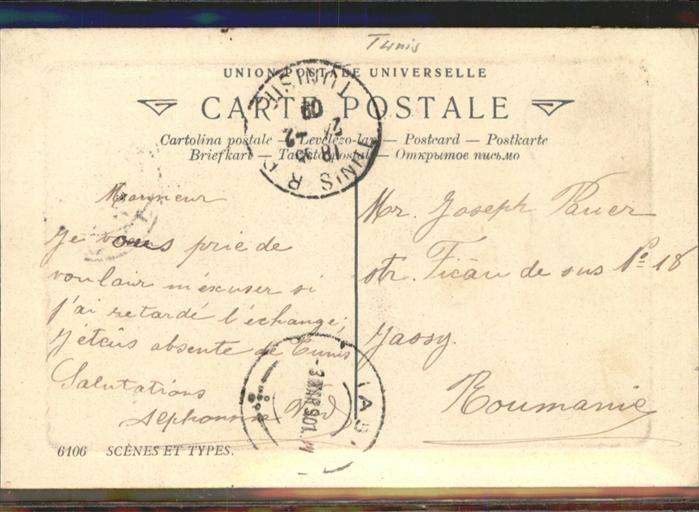 Tunis
UNION POSTALE UNIVERSELLE
CARTE POSTALE
Cartolina postale — Levelezo-lap — Postcard — Postkarte
Briefkart — Tarjeta postal — Открытое письмо
TUNIS R.P.
TUNISIE
18 35
09
Monsieur
Je vous prie de
vouloir m'éxcuser si
j'ai retardé l'échange;
j'étais absente de Tunis
Salutations
Alphonsine
Mr. Joseph Pauer
str. Ticău de sus No 18
Jassy.
Roumanie
IAS
3 MAR 901
6106 SCÈNES ET TYPES.